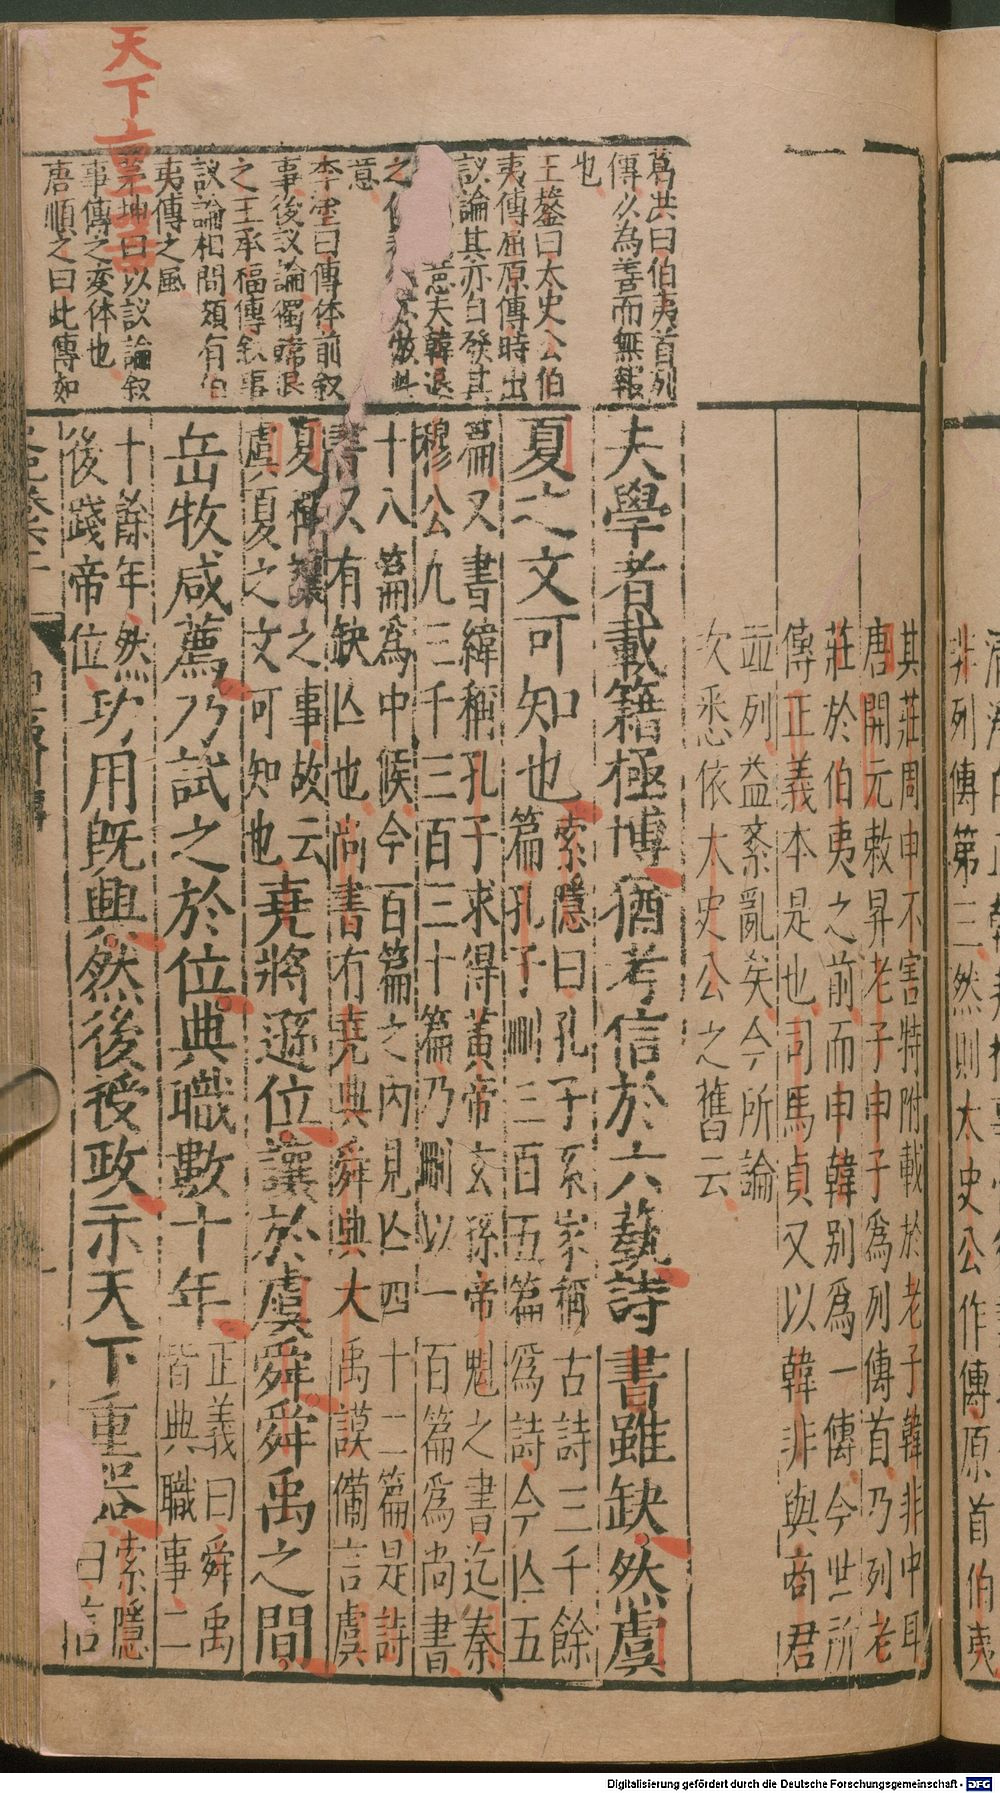 其莊周申不害特附載於老子韓非中耳
唐開元敕昇老子申子爲列傳首乃列老
莊於伯夷之前而申韓别爲一傳今世所
傳正義本是也司馬貞又以韓非與商君
並列益紊亂矣今所論
次悉依太史公之舊云
夫學者載籍極博猶考信於六蓺詩書雖缺然虞
夏之文可知也
索隱曰孔子系家稱古詩三千餘
篇孔子刪三百五篇爲詩今亡五
篇又書緯稱孔子求得黃帝玄孫帝魁之書迄秦
穆公凡三千三百三十篇乃刪以一百篇爲尚書
十八篇爲中候今百篇之内見亡四十二篇是詩
書又有缺亡也尚書有堯典舜典大禹謨備言虞
夏禪讓之事故云
虞夏之文可知也
堯將遜位讓於虞舜舜禹之間
岳牧咸薦乃試之於位典職數十年
正義曰舜禹
皆典職事二
十餘年然
後踐帝位
功用既興然後授政示天下重器
索隱
曰言
葛洪曰伯夷首列
傳以為善而無報
也
王鏊曰太史公伯
夷傳屈原傳時出
議論其亦自發其
意夫韓退
之
意
李塗曰傳体前叙
事後議論獨韓退
之王承福傳叙事
議論相間頗有伯
夷傳之風
茅坤曰以議論叙
事傳之変体也
唐順之曰此傳如
天下重器
非列傳第三然則太史公作傳原首伯夷
Digitalisierung gefördert durch die Deutsche Forschungsgemeinschaft - DFG